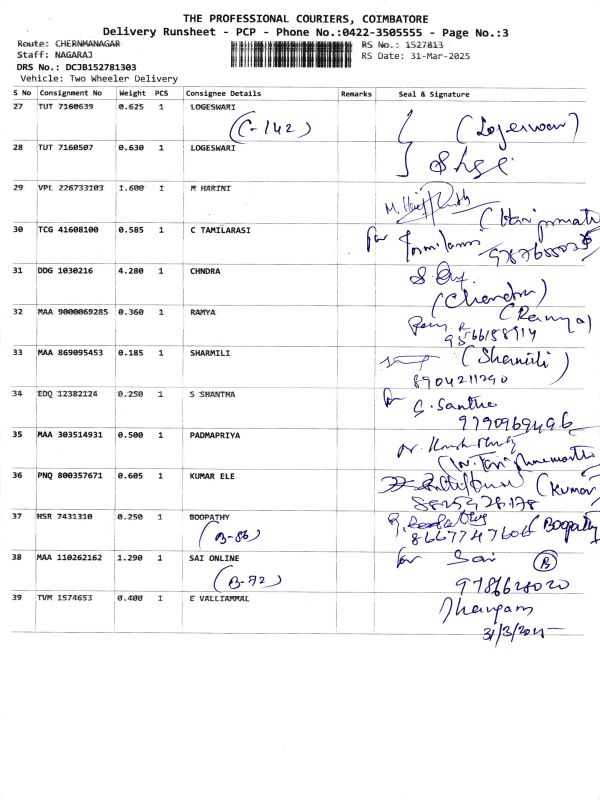 THE PROFESSIONAL COURIERS, COIMBATORE
Delivery Runsheet - PCP - Phone No.:0422-3505555 - Page No.:3
Route: CHERNMANAGAR
RS No.: 1527813
Staff: NAGARAJ
RS Date: 31-Mar-2025
DRS No.: DCJB152781303
Vehicle: Two Wheeler Delivery
S No Consignment No Weight PCS Consignee Details Remarks Seal & Signature
27 TUT 7160639 0.625 1 LOGESWARI
(C-142)
28 TUT 7160507 0.630 1 LOGESWARI
29 VPL 226733103 1.600 1 M HARINI
30 TCG 41608100 0.585 1 C TAMILARASI
for
31 DDG 1030216 4.280 1 CHNDRA
(Chandra)
32 MAA 9000069285 0.360 1 RAMYA
(Ramya)
9566158914
33 MAA 869095453 0.185 1 SHARMILI
(Sharmili)
8904211290
34 EDQ 12382124 0.250 1 S SHANTHA
for
S. Santha
9790969496
35 MAA 303514931 0.500 1 PADMAPRIYA
36 PNQ 800357671 0.605 1 KUMAR ELE
(Kumar)
37 HSR 7431310 0.250 1 BOOPATHY
(Boopathy)
(B-86)
8667747606
38 MAA 110262162 1.290 1 SAI ONLINE
for Sai (B)
(B-72)
9786628020
39 TVM 1574653 0.400 1 E VALLIAMMAL
31/3/2025